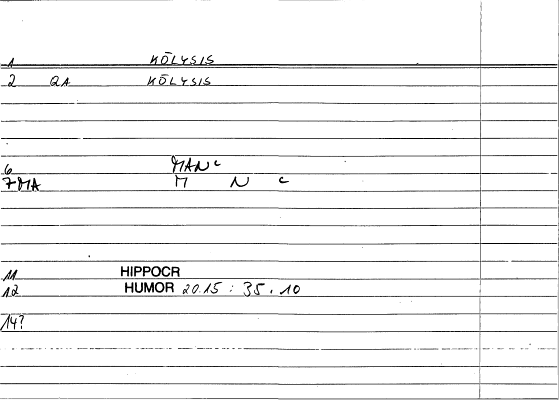 1 KŌLYSIS
2 QA KŌLYSIS
6 MANC
7MA M N C
11 HIPPOCR
12 HUMOR 2015 : 35.10
14?